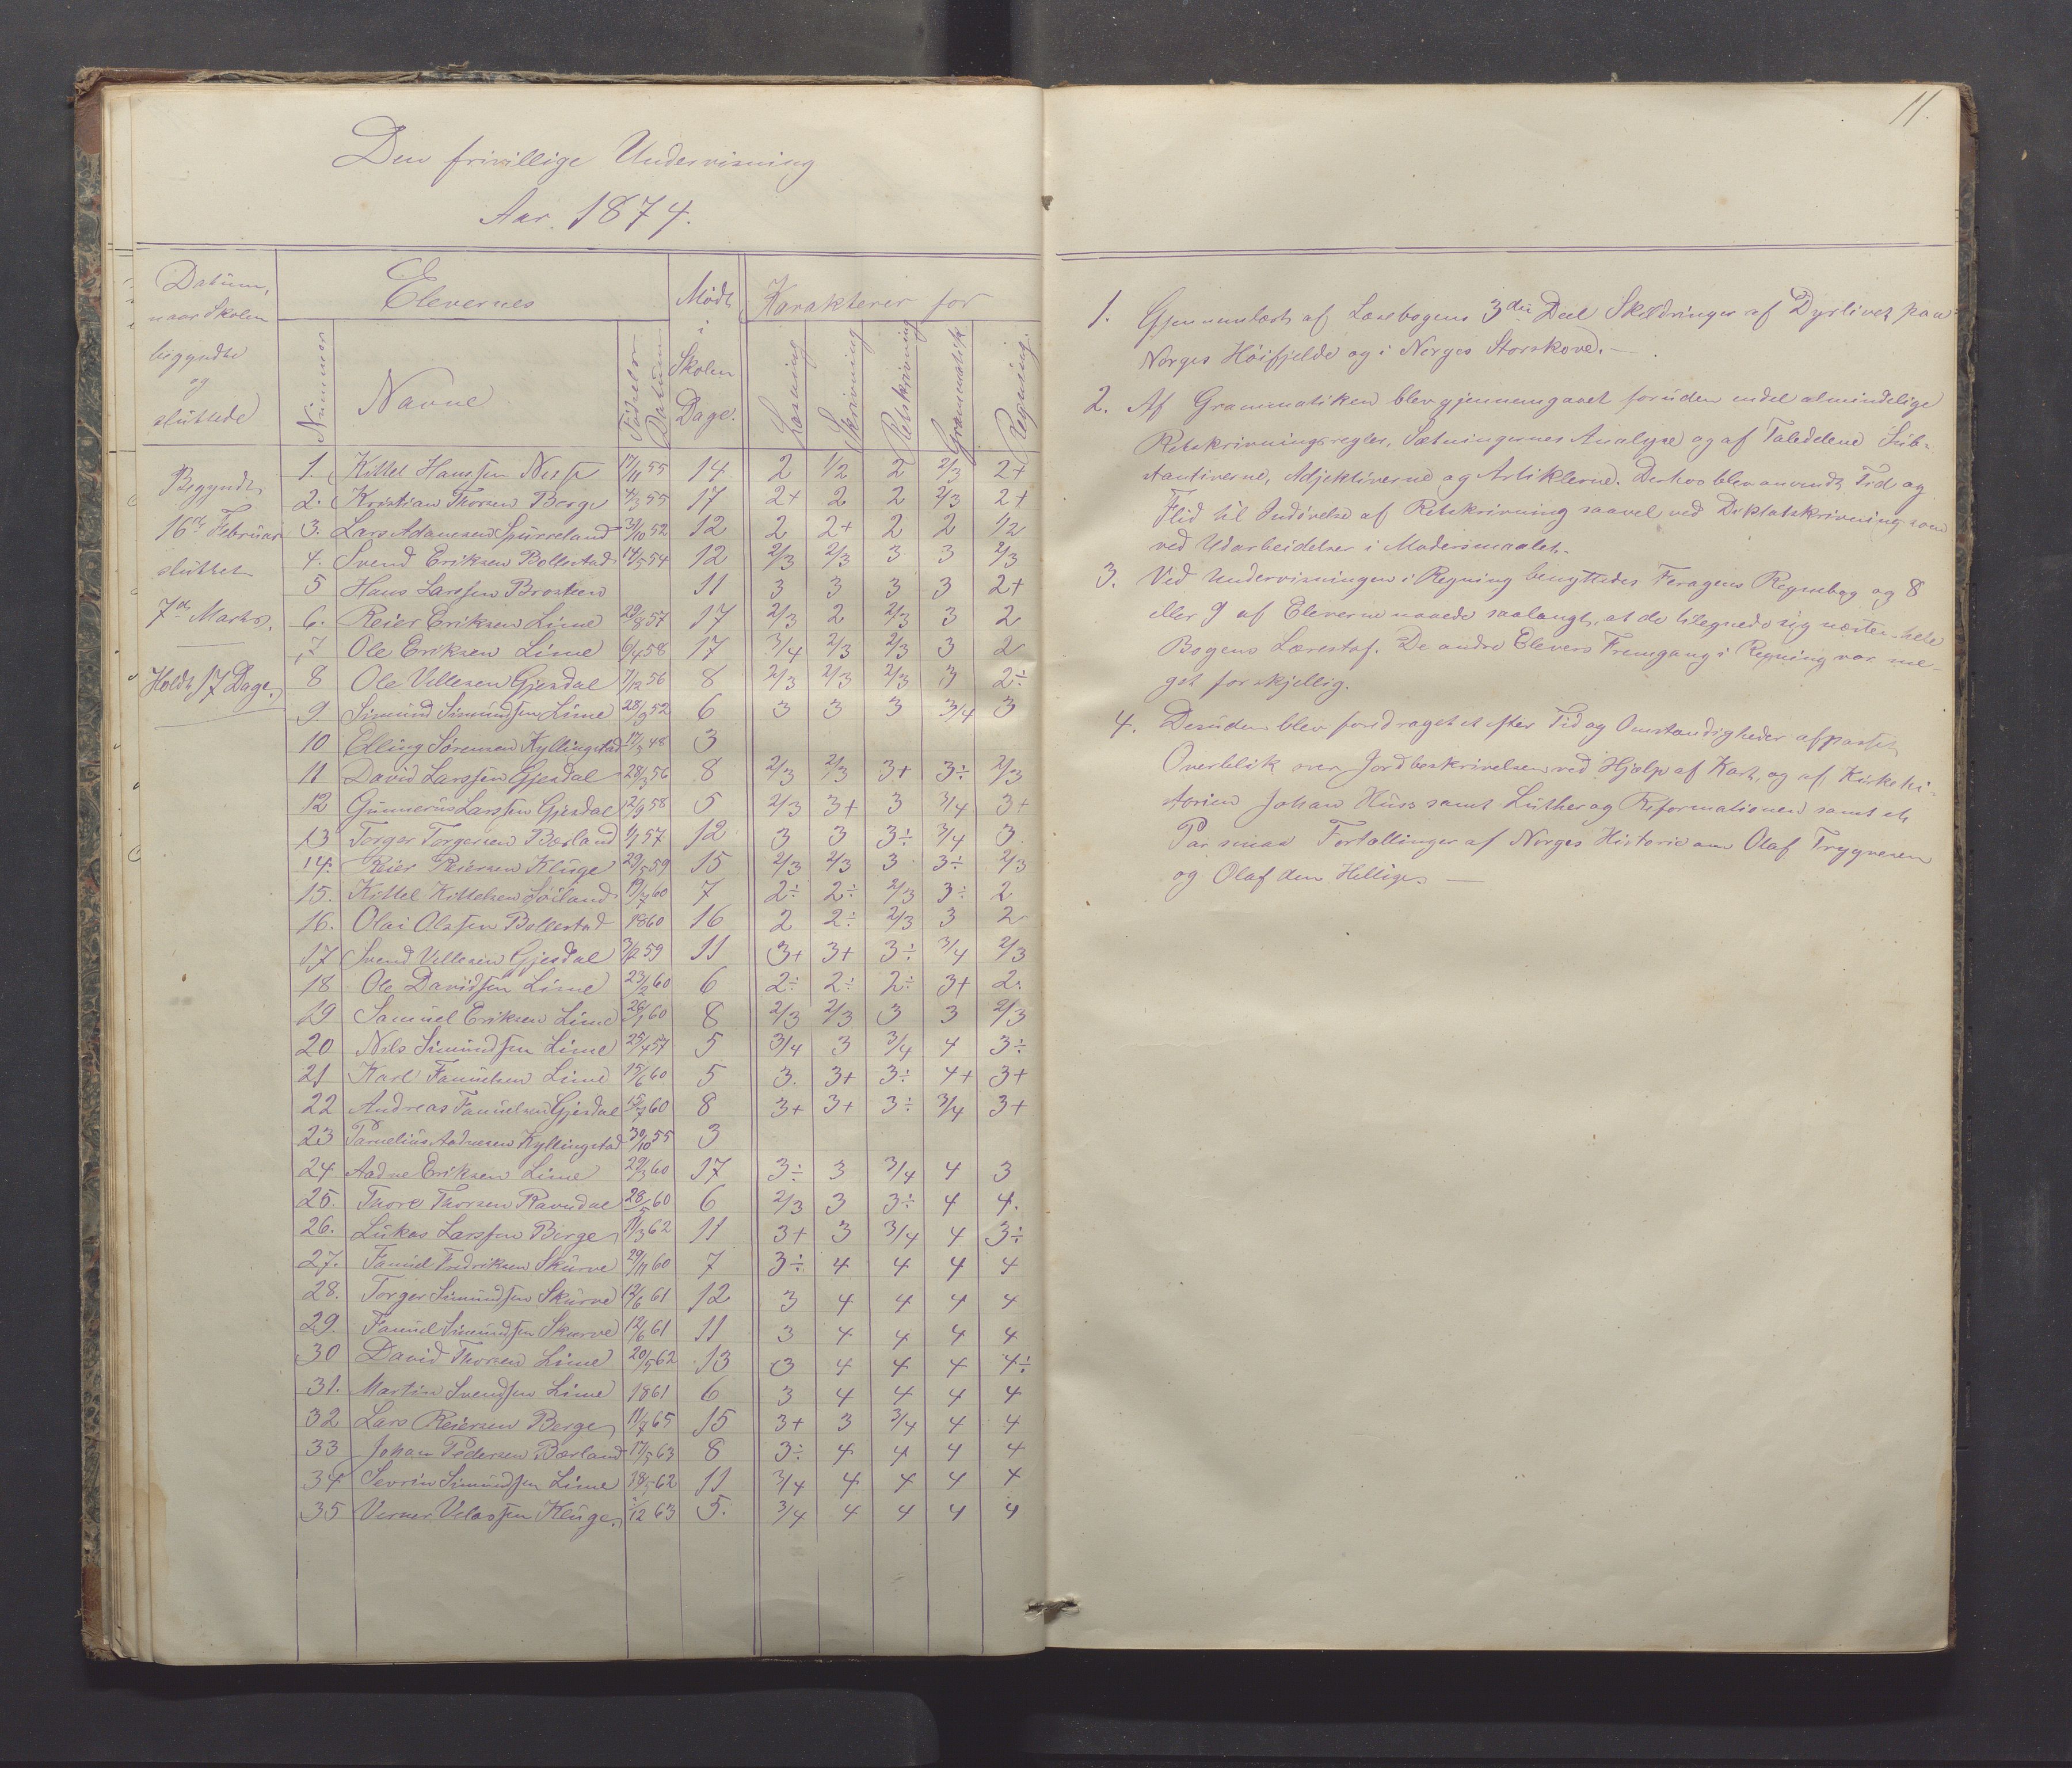 Den frivillige Undervisning
Aar. 1874.
Datum, naar Skolen begyndte og sluttede
Elevernes
Nummer
Navne
Fødsels Datum
Mødt i Skolen Dage.
Karakterer for
Læsning
Skrivning
Retskrivning
Grammatik
Regning.
Begyndt
16de Februar
sluttet
7de Marts.
Holdt 17 Dage.
1. Kittel Hanssen 17/11 55 14 2 1/2 2 2/3 2+
2. Kristian Thorsen Berge 4/3 55 17 2+ 2 2 2/3 2+
3. Lars Adamsen Spürreland 31/10 52 12 2 2+ 2 2 1/2
4. Svend Eriksen Bollestad 14/5 54 12 2/3 2/3 3 3 2/3
5 Hans Larssen Brosteen 11 3 3 3 3 2+
6. Reier Eriksen Lime 29/8 57 17 2/3 2 2/3 3 2
7 Ole Eriksen Lime 6/4 58 17 3/4 2/3 2/3 3 2
8 Ole Villesen Gjesdal 7/12 56 8 2/3 2/3 2/3 3 2÷
9 Simünd Simündsen Lime 28/9 52 6 3 3 3 3/4 3
10 Elling Sørensen Kyllingstad 17/3 48 3
11 David Larssen Gjesdal 28/3 56 8 2/3 2/3 3+ 3÷ 2/3
12 Günnerius Larssen Gjesdal 12/9 58 5 2/3 3+ 3 3/4 3+
13 Torger Torgersen Bærland 1/1 57 12 3 3 3÷ 3/4 3
14. Reier Reiersen Klüge 29/5 59 15 2/3 2/3 3 3÷ 2/3
15. Kittel Kittelsen Søiland 19/7 60 7 2÷ 2÷ 2/3 3÷ 2
16. Olai Olassen Bollestad 1860 16 2 2÷ 2/3 3 2
17 Svend Villesen Gjesdal 3/12 59 11 3+ 3+ 3÷ 3/4 2/3
18 Ole Davidsen Lime 23/2 60 6 2÷ 2÷ 2÷ 3+ 2÷
19 Samüel Eriksen Lime 26/1 60 8 2/3 2/3 3 3 2/3
20 Nils Simündsen Lime 25/4 57 5 3/4 3 3/4 4 3÷
21 Karl Famüelsen Lime 15/6 60 5 3. 3+ 3÷ 4+ 3+
22 Andreas Famüelsen Gjesdal 15/7 60 8 3+ 3+ 3÷ 3/4 3+
23 Parnelius Aadnesen Kyllingstad 30/10 55 3
24 Aadne Eriksen Lime 29/3 60 17 3÷ 3 3/4 4 3
25. Thore Thorsen Ravndal 28/5 60 6 2/3 3 3÷ 4 4.
26. Lükas Larssen Berge 11/3 62 11 3+ 3 3/4 4 3÷
27. Famüel Fredriksen Skürve 29/11 60 7 3÷ 4 4 4 4
28. Torger Simündsen Skürve 12/6 61 12 3 4 4 4 4
29. Famüel Simündsen Skürve 12/6 61 11 3 4 4 4 4
30 David Thorsen Lime 20/5 62 13 3 4 4 4 4÷
31. Martin Svendsen Lime 1861 6 3 4 4 4 4
32 Lars Reiersen Berge 11/7 65 15 3+ 3 3/4 4 4
33 Johan Pedersen Bærland 17/5 63 8 3÷ 4 4 4 4
34 Sevrin Simündsen Lime 18/5 62 11 3/4 4 4 4 4
35 Verner Velassen Klüge 1/12 63 5. 3/4 4 4 4 4
11.
1. Gjennemlæst af Læsebogens 3die Deel Skildringer af Dyrlivet paa
Norges Höifjelde og i Norges Storskove.—
2. Af Grammatiken blev gjennemgaaet foruden endel almindelige
Retskrivningsregler, Sætningernes Analyse og af Taledelene Süb-
stantiverne, Adjektiverne og Artiklerne. Derhos blev anvendt Tid og
Flid til Indøvelse af Retskrivning saavel ved Diktatskrivning som
ved Udarbeidelser i Modersmaalet.
3. Ved Undervisningen i Regning benyttedes Feragens Regnebog og 8
eller 9 af Eleverne naaede saalangt, at de tilegnede sig næsten hele
Bogens Lærestof. De andre Elevers Fremgang i Regning var me-
get forskjellig.
4. Desuden blev foredraget et efter Tid og Omstændigheder afpasset
Overblik over Jordbeskrivelsen ved Hjælp af Kart, og af Kirkehi-
storien Johan Hüss samt Lüther og Reformationen samt et
Par smaa Fortællinger af Norges Historie om Olaf Trygvesen
og Olaf den Hellige. —